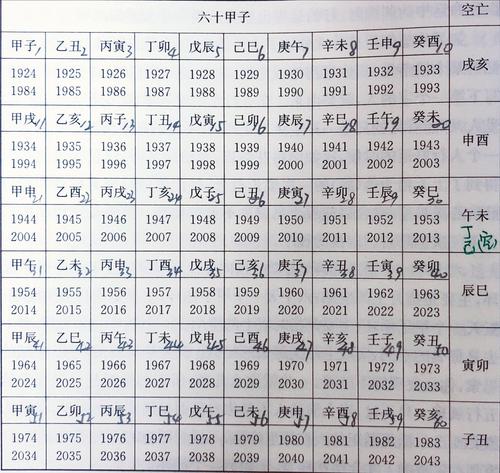 六十甲子 空亡
甲子1 乙丑2 丙寅3 丁卯4 戊辰5 己巳6 庚午7 辛未8 壬申9 癸酉10
1924 1925 1926 1927 1928 1929 1930 1931 1932 1933 戌亥
1984 1985 1986 1987 1988 1989 1990 1991 1992 1993
甲戌11 乙亥12 丙子13 丁丑14 戊寅15 己卯16 庚辰17 辛巳18 壬午19 癸未20
1934 1935 1936 1937 1938 1939 1940 1941 1942 1943 申酉
1994 1995 1996 1997 1998 1999 2000 2001 2002 2003
甲申21 乙酉22 丙戌23 丁亥24 戊子25 己丑26 庚寅27 辛卯28 壬辰29 癸巳30
1944 1945 1946 1947 1948 1949 1950 1951 1952 1953 午未
2004 2005 2006 2007 2008 2009 2010 2011 2012 2013 丁
甲午31 乙未32 丙申33 丁酉34 戊戌35 己亥36 庚子37 辛丑38 壬寅39 癸卯40
1954 1955 1956 1957 1958 1959 1960 1961 1962 1963 辰巳
2014 2015 2016 2017 2018 2019 2020 2021 2022 2023
甲辰41 乙巳42 丙午43 丁未44 戊申45 己酉46 庚戌47 辛亥48 壬子49 癸丑50
1964 1965 1966 1967 1968 1969 1970 1971 1972 1973 寅卯
2024 2025 2026 2027 2028 2029 2030 2031 2032 2033
甲寅51 乙卯52 丙辰53 丁巳54 戊午55 己未56 庚申57 辛酉58 壬戌59 癸亥60
1974 1975 1976 1977 1978 1979 1980 1981 1982 1983 子丑
2034 2035 2036 2037 2038 2039 2040 2041 2042 2043